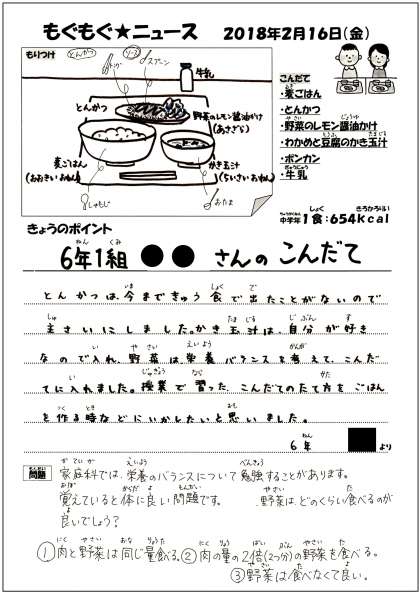 もぐもぐ★ニュース 2018年2月16日(金)
もりつけ
とんかつ
ソース
トング
スプーン
牛乳
とんかつ
野菜のレモン醤油かけ
(あさざら)
麦ごはん
(おおきいおわん)
かき玉汁
(ちいさいおわん)
しゃもじ
おたま
こんだて
・麦ごはん
・とんかつ
・野菜のレモン醤油かけ
・わかめと豆腐のかき玉汁
・ポンカン
・牛乳
中学年1食:654kcal
きょうのポイント
6年1組 ●● さんの こんだて
とんかつは、今まできゅう食で出たことがないので
主さいにしました。かき玉汁は、自分が好き
なので入れ、野菜は、栄養バランスを考えて、こんだ
てに入れました。授業で習った、こんだてのたて方をごはん
を作る時などにいかしたいと思いました。
6年 ■ より
問題 家庭科では、栄養のバランスについて勉強することがあります。
覚えていると体に良い問題です。 野菜は、どのくらい食べるのが
良いでしょう?
①肉と野菜は同じ量食べる。②肉の量の2倍(2つ分)の野菜を食べる。
③野菜は食べなくて良い。